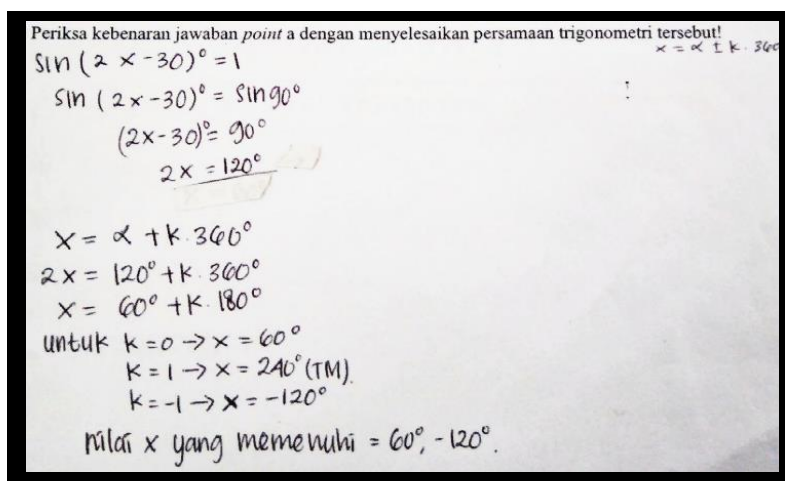 Periksa kebenaran jawaban point a dengan menyelesaikan persamaan trigonometri tersebut!
x = α ± k. 360
sin (2x-30)° = 1
sin (2x-30)° = sin 90°
(2x-30)° = 90°
2x = 120°
x = α + k. 360°
2x = 120° + k. 360°
x = 60° + k. 180°
untuk k = 0 → x = 60°
k = 1 → x = 240° (TM).
k = -1 → x = -120°
nilai x yang memenuhi = 60°, -120°.